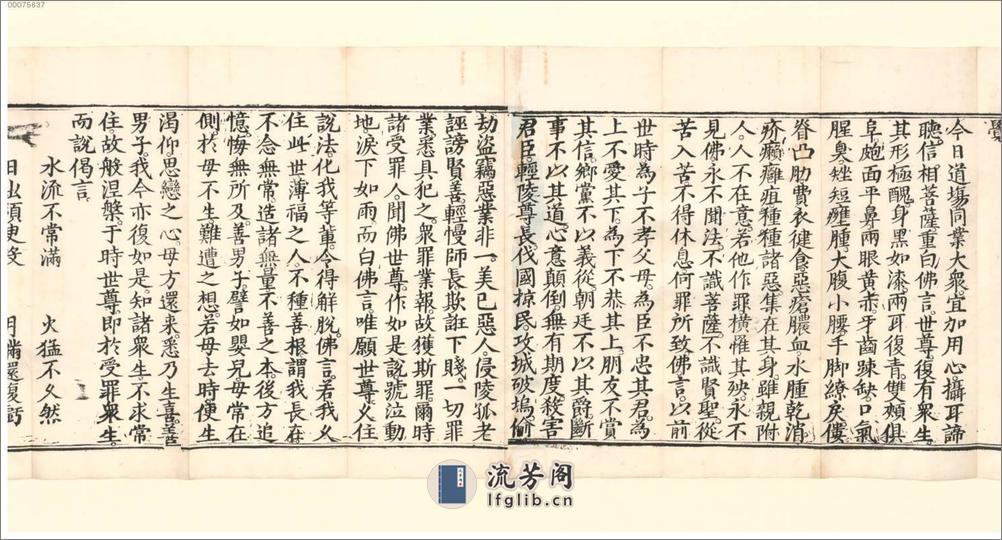 今日道場同業大衆。宜加用心攝耳諦
聽。信相菩薩重白佛言。世尊。復有衆生。
其形極醜。身黑如漆。兩耳復青。雙頰俱
阜。皰面平鼻。兩眼黃赤。牙齒踈缺。口氣
腥臭。矬短癰腫。大腹小腰。手脚繚戾。僂
脊凸肋。費衣健食。惡瘡膿血。水腫乾消。
疥癩癰疽。種種諸惡。集在其身。雖親附
人。人不在意。若他作罪。橫惟其殃。永不
見佛。永不聞法。不識菩薩。不識賢聖。從
苦入苦。不得休息。何罪所致。佛言。以前
世時。為子不孝父母。為臣不忠其君。為
上不愛其下。為下不恭其上。朋友不賞
其信。鄉黨不以義從。朝廷不以其爵。斷
事不以其道。心意顛倒。無有期度。殺害
君臣。輕陵尊長。伐國掠民。攻城破塢。偷
劫盜竊。惡業非一。美己惡人。侵陵孤老。
誣謗賢善。輕慢師長。欺誑下賤。一切罪
業。悉具犯之。衆罪業報。故獲斯罪。爾時
諸受罪人。聞佛世尊。作如是說。號泣動
地。淚下如雨。而白佛言。唯願世尊。久住
說法。化我等輩。令得解脫。佛言。若我久
住此世。薄福之人。不種善根。謂我長在。
不念無常。造諸無量不善之本。後方追
憶。悔無所及。善男子。譬如嬰兒。母常在
側。於母不生難遭之想。若母去時。便生
渴仰思戀之心。母方還来。悉乃生喜。善
男子。我今亦復如是。知諸衆生不求常
住。故般涅槃。于時世尊。即於受罪衆生。
而說偈言
水流不常滿 火猛不久然
日出須臾没 月滿還復虧
00075637
流芳阁
lfglib.cn